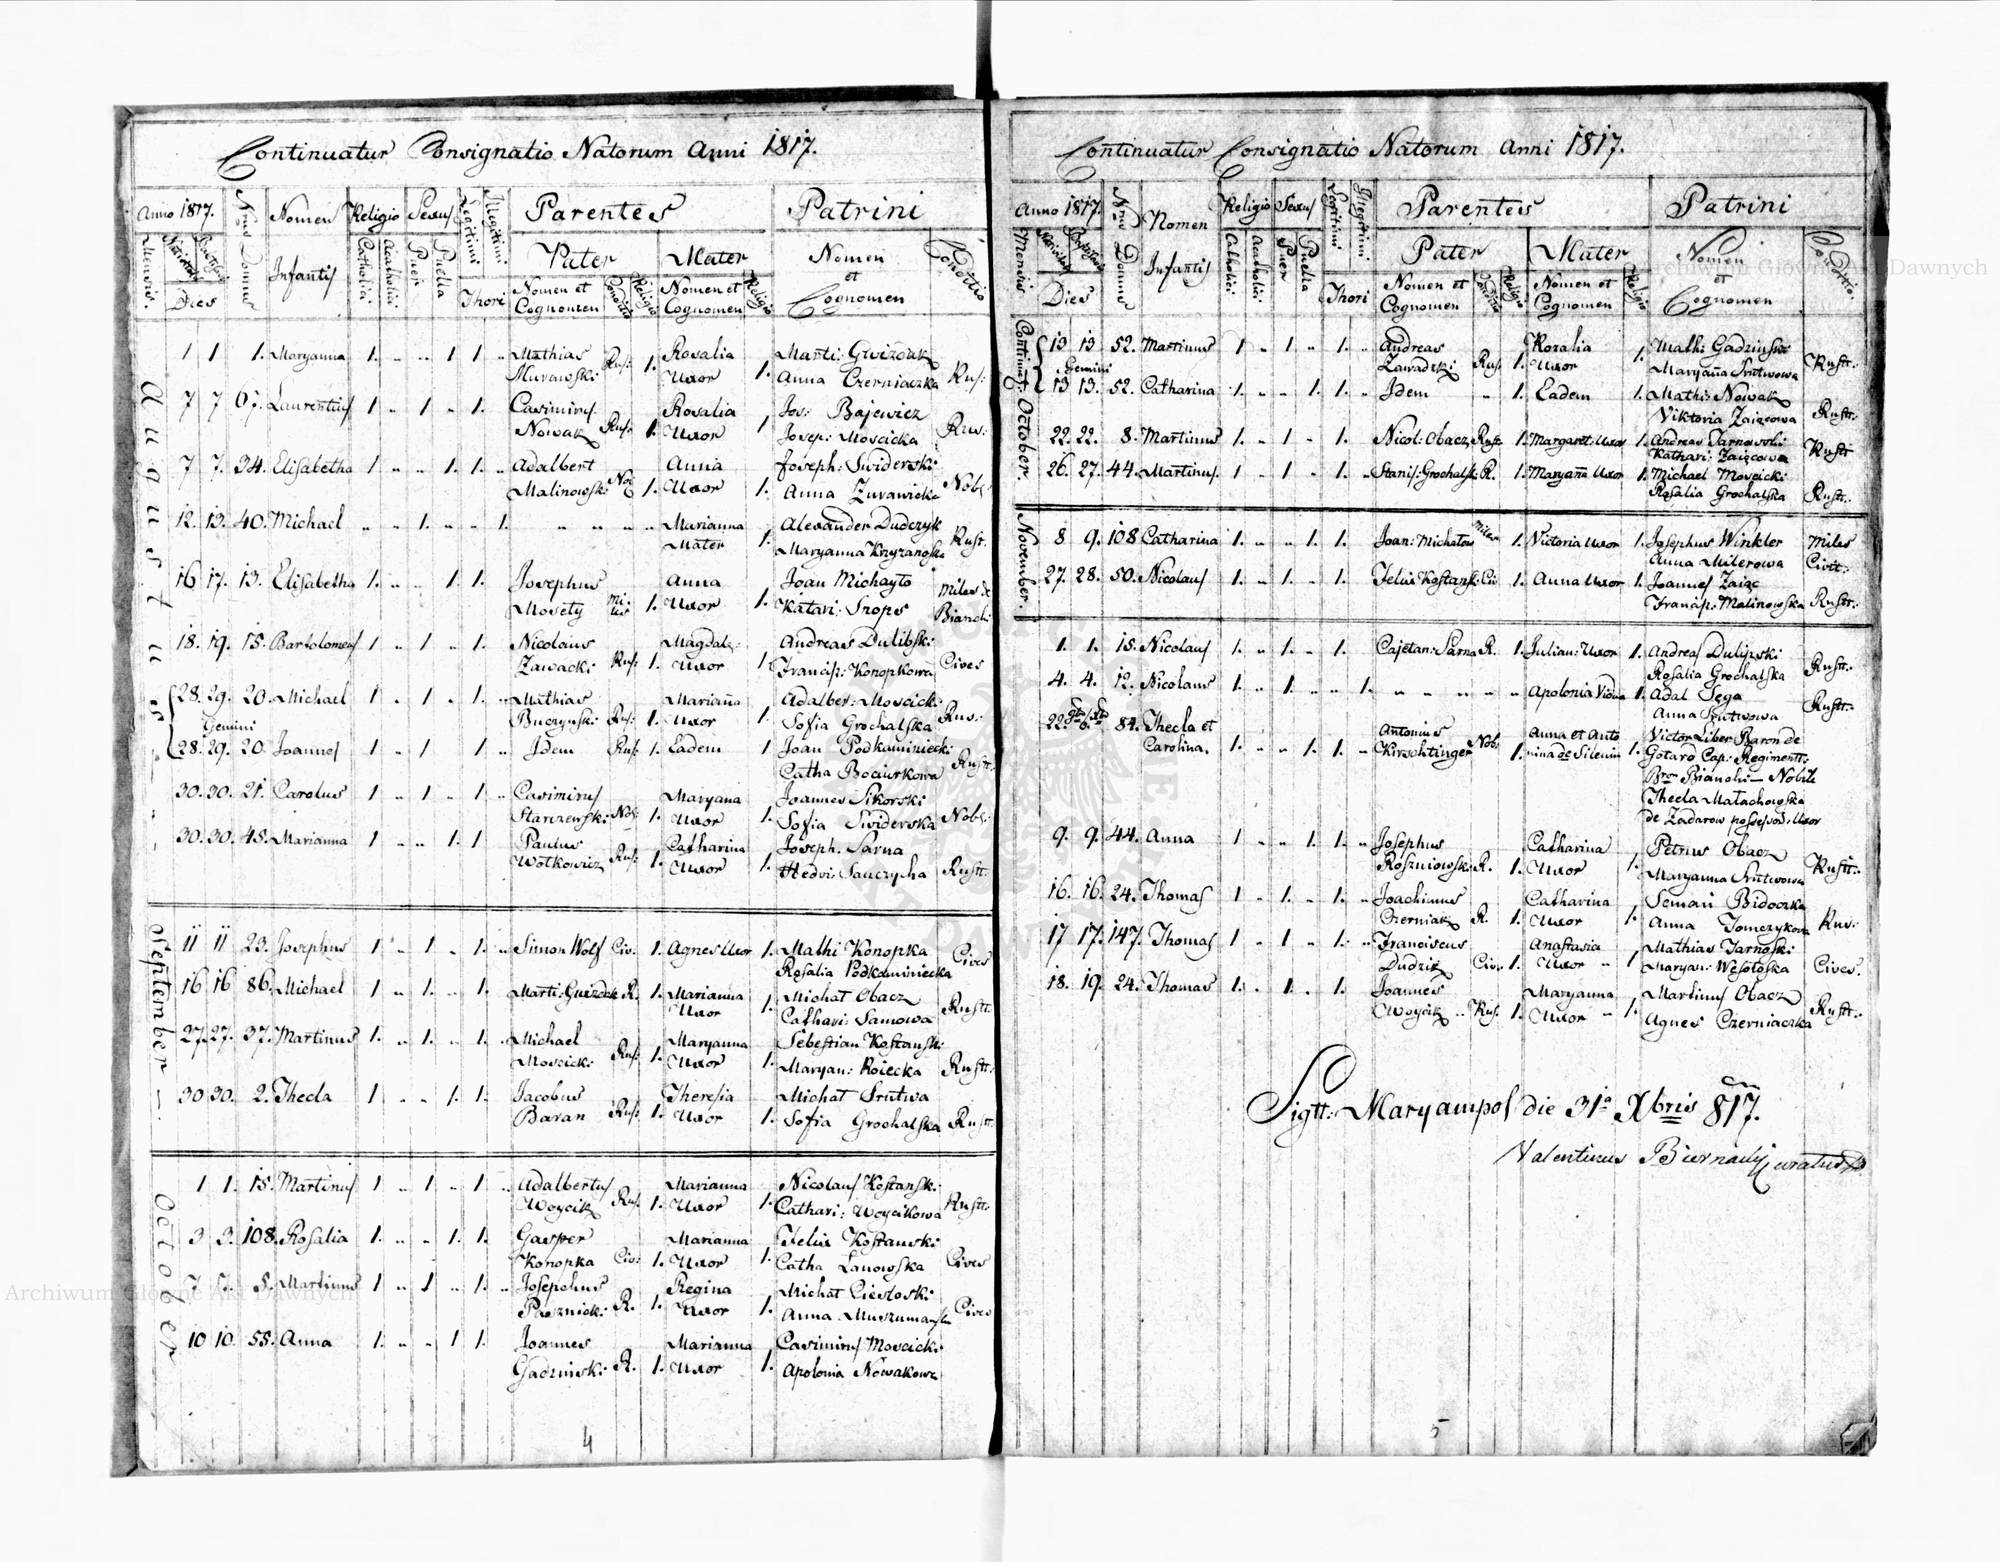 Continuatur Consignatio Natorum Anni 1817.
Anno 1817. Nrus Domus Nomen Infantis Religio Sexus Legitimi Illegitimi Parentes Patrini
Mensis. Nativitatis Baptismi Dies Catholici Acatholici Puer Puella Thori Pater Mater Nomen et Cognomen Conditio
Nomen et Cognomen Conditio Religio Nomen et Cognomen Religio
Augustus
1 1. 1. Maryanna 1. .. .. 1 1 .. Mathias Rus: 1. Rosalia 1. Marti: Gwizdak Rus:
Murawski Uxor Anna Czerniaczka
7 7 67. Laurentius 1 .. 1 .. 1. Casimirus Rus: 1. Rosalia 1 Jos: Bajewicz Rus:
Nowak Uxor Josep: Moscicka
7 7. 34. Elisabetha 1 .. .. 1. 1. .. Adalbert Nob 1. Anna 1. Joseph: Swiderski Nob:
Malinowski Uxor Anna Zurawicka
12. 13. 40. Michael .. .. 1. .. .. 1. .. .. .. .. Marianna 1. Alexander Dudczyk Rust.
Mater Maryanna Krzyzanoska
16 17. 13. Elisabetha 1. .. .. 1 1. Josephus Miles 1. Anna 1. Joan Michayto Miles de
Mosety Uxor Katari: Snopes Bianchi
18. 19. 15. Bartolomeus 1 .. 1 .. 1. Nicolaus Rus: 1. Magdal: 1 Andreas Dulibski Cives
Zawacki Uxor Francisz: Konopkowa
28. 29. 20. Michael 1 .. 1 .. 1. .. Mathias Rus: 1. Mariana 1. Adalber: Moscicki Rus:
Gemini Buczynski Uxor Sofia Grochalska
28. 29. 20. Joannes 1 .. 1 1. Idem Rus: 1. Eadem 1 Joan Podkaminiecki Rustt:
Catha Bociurkowa
30. 30. 21. Carolus 1 .. 1 .. 1 .. Casimirus Nob: 1. Maryana 1. Joannes Sikorski Nob:
Starzewski Uxor Sofia Swiderska
30. 30. 45. Marianna 1 .. .. 1. 1 Paulus Rus: 1. Catharina 1. Joseph. Sarna Rustt.
Wotkowicz Uxor Hedvi: Sauczycha
September
11 11 23. Josephus 1 .. 1 .. 1. .. Simon Wolf Civ: 1. Agnes Uxor 1. Mathi Konopka Cives
Rosalia Podkaminiecka
16 16 86. Michael 1 .. 1. .. 1. Marti: Gwizdak R. 1. Marianna 1. Michat Obacz Rustt:
Uxor Cathari: Samowa
27. 27. 37. Martinus 1. .. 1. .. 1. .. Michael Rus: 1. Maryanna 1. Sebestian Kostanski Rustt:
Moscicki Uxor Maryan: Roiecka
30 30. 2. Thecla 1 .. .. 1. 1. Jacobus Rus: 1. Theresia 1. Michat Srutwa Rustt:
Baran Uxor Sofia Grochalska
October
1 1. 15. Martinus 1 .. 1 .. 1 .. Adalbertus Rus: 1. Marianna 1. Nicolaus Kostanski Rustt:
Woycik Uxor Cathari: Woycikowa
3 3. 108. Rosalia 1. .. .. 1. 1. Gasper Civ: 1. Marianna 1. Felix Kostanski Cives
Konopka Uxor Catha Lanowska
7. 7. 5. Martinus 1 .. 1 .. 1. .. Josephus R. 1. Regina 1. Michat Ciesloski Cives
Uxor Anna
10 10. 55. Anna 1. .. .. 1 1. Joannes R. 1. Marianna 1. Casimirus Moscicki
Gadzinski Uxor Apolonia Nowakowa
4
Continuatur Consignatio Natorum Anni 1817.
Anno 1817. Nrus Domus Nomen Infantis Religio Sexus Legitimi Illegitimi Parentes Patrini
Mensis Nativitatis Baptismi Dies Catholici Acatholici Puer Puella Thori Pater Mater Nomen et Cognomen Conditio.
Nomen et Cognomen Conditio Religio Nomen et Cognomen Religio
Continuat: October.
13 13 52. Martinus 1 .. 1 .. 1. .. Andreas Rus: 1. Rozalia 1. Math: Gadzinski Rustt:
Gemini Zawadzki Uxor Maryana Srutwowa
13 13. 52. Catharina 1. .. .. 1 1. .. Idem .. 1. Eadem 1. Math: Nowak Rustt:
Viktoria Zaięcowa
22. 22. 8. Martinus 1. .. 1 .. 1. Nicol: Obacz Rust: 1. Margaret: Uxor 1. Andreas Tarnowski Rustt
Kathari: Zaięcowa
26. 27. 44. Martinus. 1. .. 1 .. 1. .. Stanis: Grochalsk: R. 1. Maryana Uxor 1. Michael Moscicki Rustt:
Rosalia Grochalska
November.
8 9. 108 Catharina 1. .. .. 1. 1. Joan: Michatow Miles 1. Victoria Uxor 1. Josephus Winkler Miles
Anna Milerowa Civit:
27. 28. 50. Nicolaus 1. .. 1. .. 1. Felix Kostanski Civ 1. Anna Uxor 1. Joannes Zaiąc
Francisz: Malinowska Rustt:
1. 1. 15. Nicolaus 1. .. 1. .. 1. Cajetan: Sarna R. 1. Julian: Uxor 1. Andreas Dulipski Rustt:
Rosalia Grochalska
4. 4. 12. Nicolaus 1. .. 1. .. .. 1. .. .. .. .. .. Apolonia Vidua 1. Adal Sęga Rustt:
Anna Srutwowa
22. 84. Thecla et 1. .. .. 1. 1. .. Antonius Nob: 1. Anna et Anto 1. Victor Liber Baron de
Carolina. Kirschtinger nina de Silenin Gotard Cap: Regimentt:
Bron Bianchi — Nobili
Thecla Małachowska
de Zadarow possessor: Uxor
9. 9. 44. Anna 1 .. .. 1. 1. .. Josephus R. 1. Catharina 1. Petrus Obacz Rustt:
Roszniowski Uxor Maryanna Srutwowa
16. 16. 24. Thomas 1 .. 1. .. 1. Joachimus R. 1. Catharina 1. Seman Bidoczka Rus:
Czerniak Uxor Anna Tomczykowa
17 17. 147. Thomas 1 .. 1 .. 1. .. Franciscus Civ. 1. Anastasia 1 Mathias Tarnoski Cives.
Dudzik Uxor .. Maryan: Wesołoska
18. 19. 24. Thomas 1. .. 1. .. 1. Joannes Rus. 1. Maryanna 1. Martinus Obacz Rustt:
Woycik .. Uxor .. Agnes Czerniaczka
Sigtt: Maryampol die 31a Xbris 817.
Valentinus Curatus
5
Archiwum Główne Akt Dawnych
Archiwum Główne Akt Dawnych